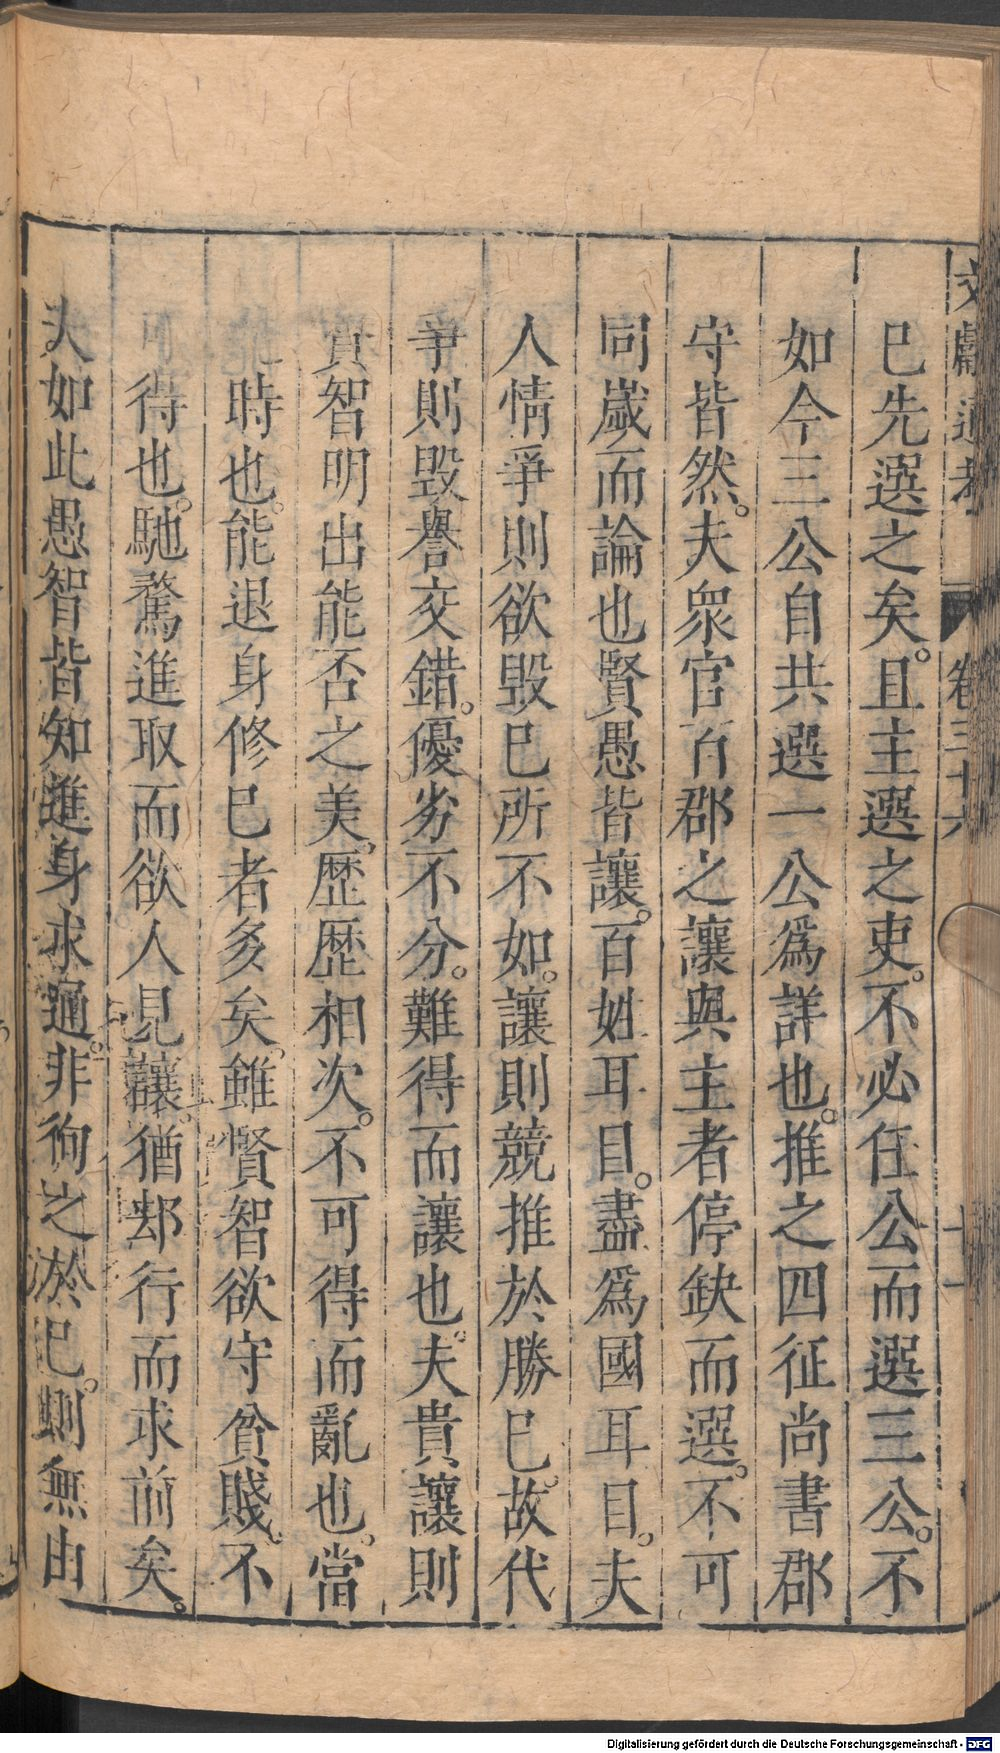 文獻通考 卷三十六 十一
已先選之矣。且主選之吏。不必任公而選三公。不
如今三公自共選一公爲詳也。推之四征尚書郡
守皆然。夫衆官百郡之讓與主者停缺而選。不可
同歲而論也賢愚皆讓。百姓耳目。盡爲國耳目。夫
人情爭則欲毀已所不如。讓則競推於勝已。故代
爭則毀譽交錯。優劣不分。難得而讓也。夫貴讓則
賢智明出能否之美。歷歷相次。不可得而亂也。當
時也。能退身修已者多矣。雖賢智欲守貧賤。不
得也。馳騖進取而欲人見讓。猶却行而求前矣。
夫如此愚智皆知進身求通。非徇之於已。則無由
Digitalisierung gefördert durch die Deutsche Forschungsgemeinschaft - DFG